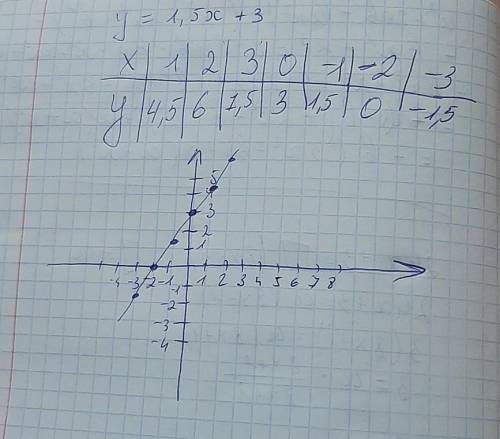 y = 1,5x + 3
x 1 2 3 0 -1 -2 -3
y 4,5 6 7,5 3 1,5 0 -1,5
5
4
3
2
1
-4 -3 -2 -1 1 2 3 4 5 6 7 8
-1
-2
-3
-4